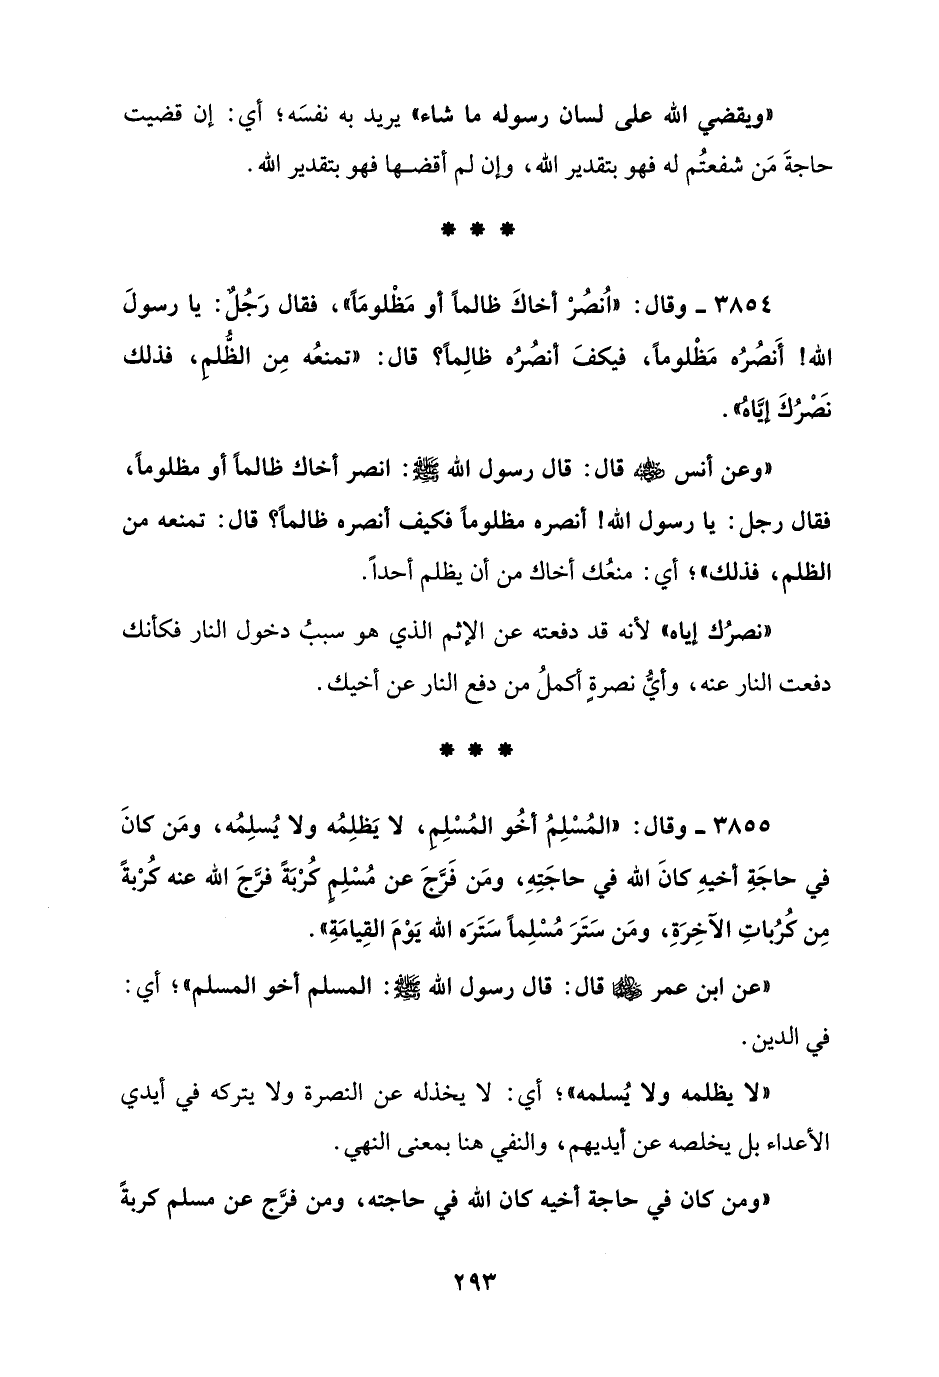 «ويقضي الله على لسان رسوله ما شاء» يريد به نفسَه؛ أي: إن قضيت
حاجةَ مَن شفعتُم له فهو بتقدير الله، وإن لم أقضـها فهو بتقدير الله.
* * *
٣٨٥٤ ـ وقال: «اُنصُرْ أخاكَ ظالماً أو مَظْلومَاً»، فقال رَجُلٌ: يا رسولَ
الله! أَنصُرُه مَظْلوماً، فيكفَ أنصُرُه ظالِماً؟ قال: «تمنعُه مِن الظُّلمِ، فذلك
نَصْرُكَ إيَّاهُ».
«وعن أنس ﵁ قال: قال رسول الله ﷺ: انصر أخاك ظالماً أو مظلوماً،
فقال رجل: يا رسول الله! أنصره مظلوماً فكيف أنصره ظالماً؟ قال: تمنعه من
الظلم، فذلك»؛ أي: منعُك أخاك من أن يظلم أحداً.
«نصرُك إياه» لأنه قد دفعته عن الإثم الذي هو سببُ دخول النار فكأنك
دفعت النار عنه، وأيُّ نصرةٍ أكملُ من دفع النار عن أخيك.
* * *
٣٨٥٥ ـ وقال: «المُسْلِمُ أخُو المُسْلِمِ، لا يَظلِمُه ولا يُسلِمُه، ومَن كانَ
في حاجَةِ أخيهِ كانَ الله في حاجَتِهِ، ومَن فَرَّجَ عن مُسْلِمٍ كُرْبَةً فرَّجَ الله عنه كُرْبةً
مِن كُرُباتِ الآخِرَةِ، ومَن سَتَرَ مُسْلِماً سَتَرَه الله يَوْمَ القِيامَةِ».
«عن ابن عمر ﵄ قال: قال رسول الله ﷺ: المسلم أخو المسلم»؛ أي:
في الدين.
«لا يظلمه ولا يُسلمه»؛ أي: لا يخذله عن النصرة ولا يتركه في أيدي
الأعداء بل يخلصه عن أيديهم، والنفي هنا بمعنى النهي.
«ومن كان في حاجة أخيه كان الله في حاجته، ومن فرَّج عن مسلم كربةً
٢٩٣